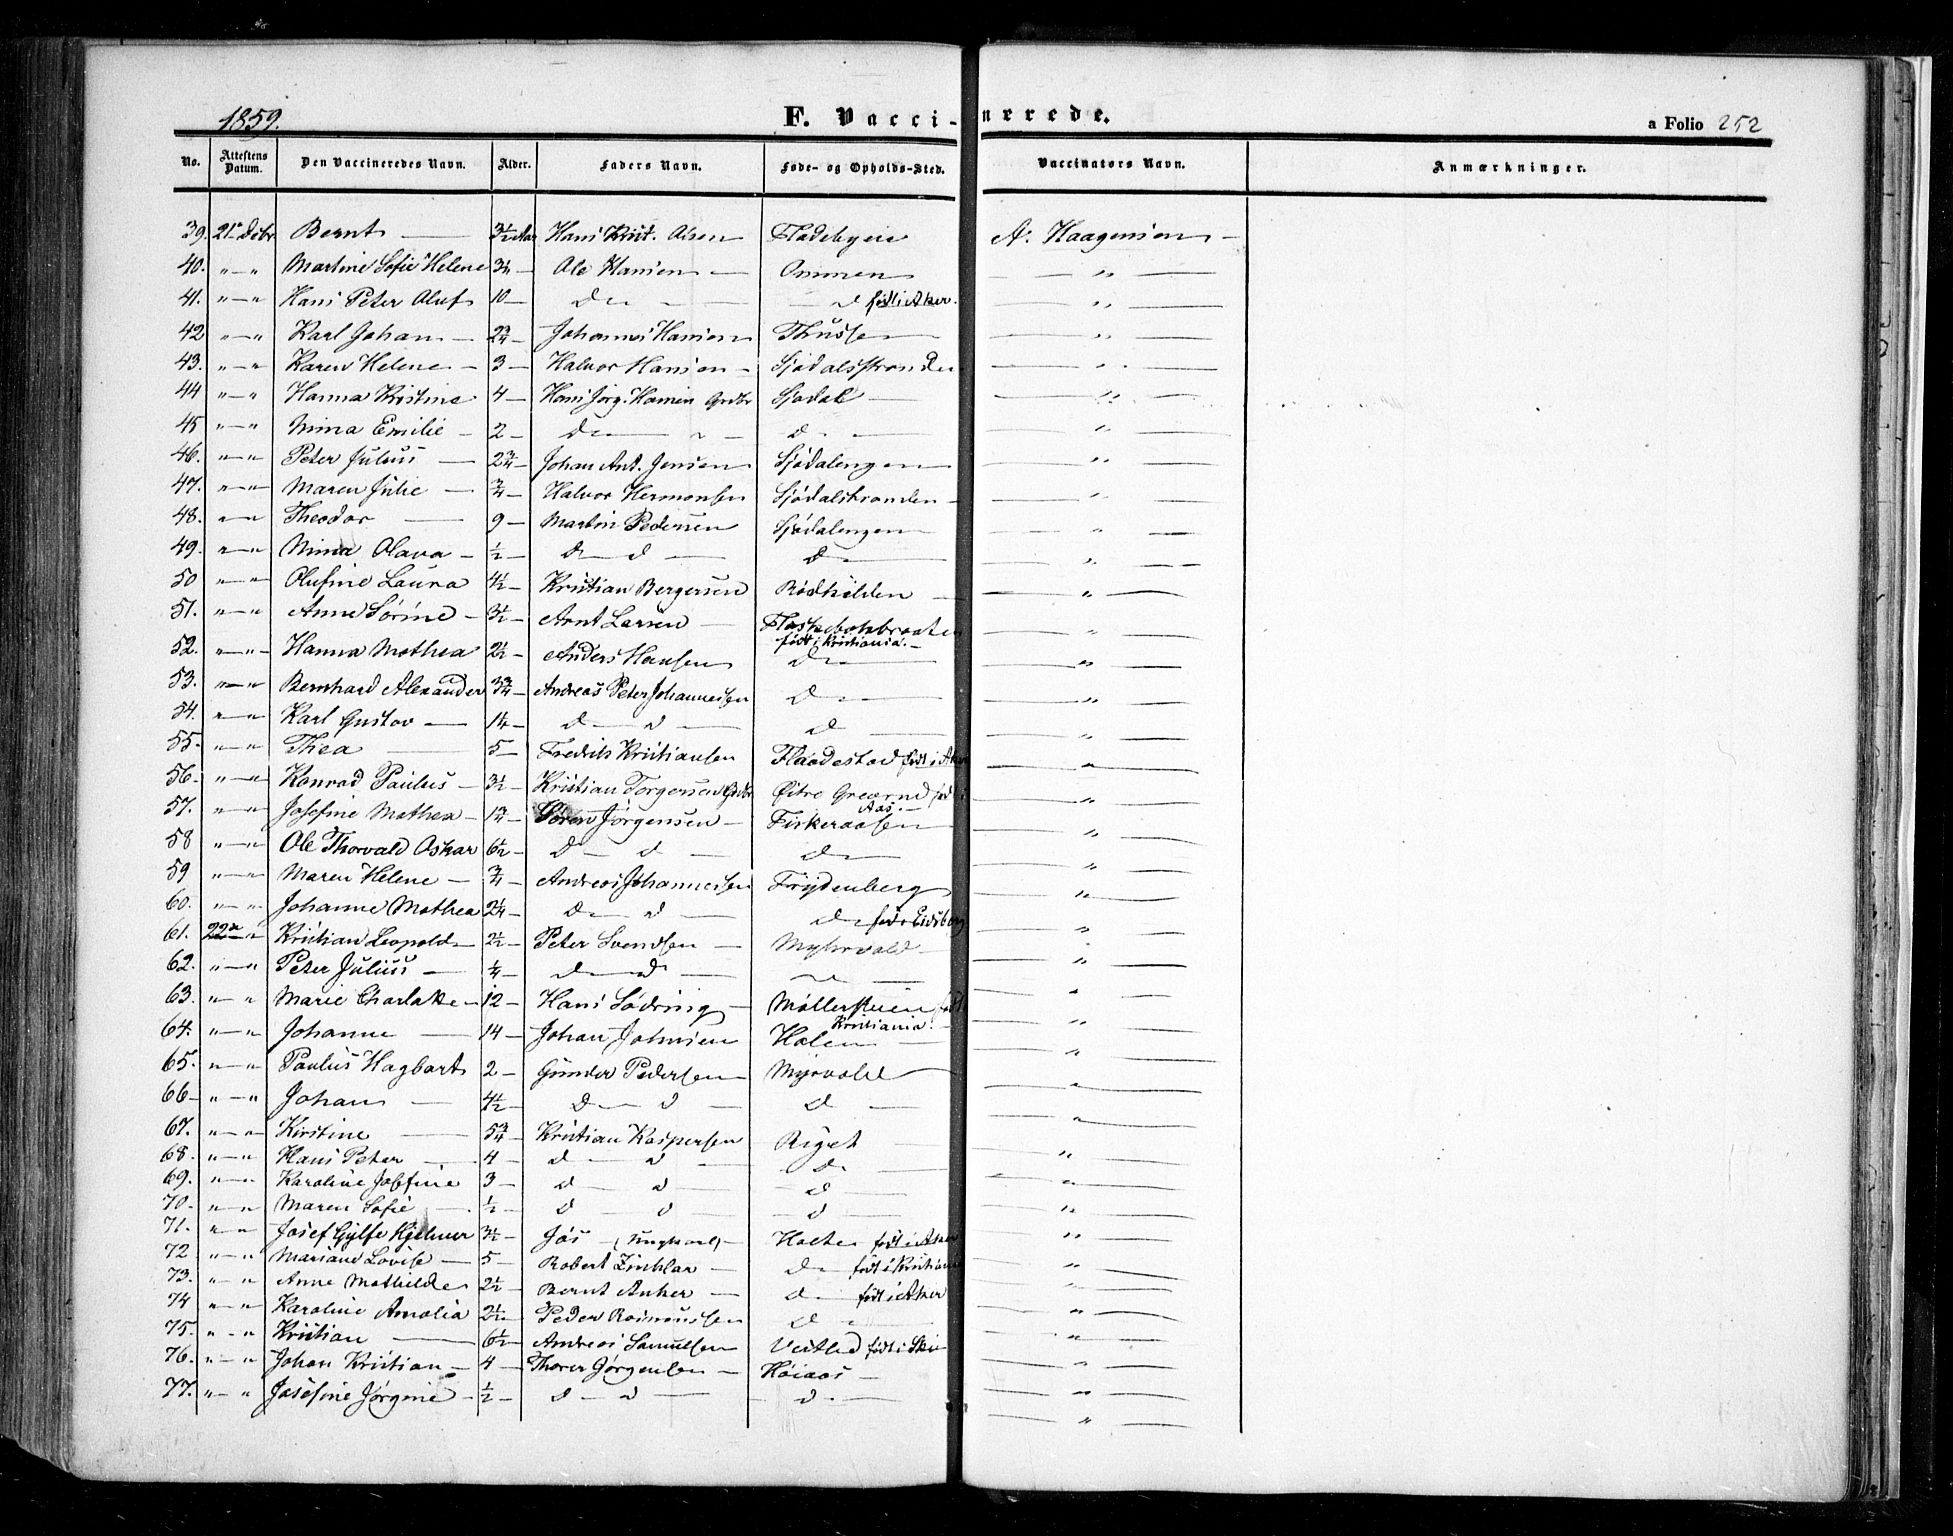 1859. F. Vaccinerede. a Folio 252
No. Attestens Datum. Den Vaccineredes Navn. Alder. Faders Navn. Føde- og Opholds-Sted. Vaccinators Navn. Anmærkninger.
39. 21 Debr Bernt — 3½ Aar Hans Krist. Olsen A. Haagensen —
40. " — " Martine Sofie Helene 3¼ — Ole Hansen — Ommen — " —
41. " — " Hans Peter Oluf 10 — D — — d født i Aker. — " —
42 " — " Karl Johan — 2¾ — Johannes Hansen Thusse — — " —
43. " — " Karen Helene — 3 — Halvor Hansen — Sjødalsstranden — " —
44 " — " Hanna Kristine 4 — Hans Jørg. Hansen Grdbr Sjødal — — " —
45 " — " Mina Emilie — 2 — D — " — d — — — " —
46. " — " Peter Julius — 2¾ — Johan Ant. Jensen Sjødalengen — " —
47. " — " Maren Julie — ¾ — Halvor Hermansen Sjødalstranden — — " —
48. " — " Theodor — 9 — Martin Pedersen Sjødalengen — " —
49. " — " Mina Olava — ½ — D — d — D — — " —
50 " — " Olufine Laura 4½ — Kristian Bergersen Rødkilden — — " —
51. " — " Anne Sørine — 3½ — Arnt Larsen — Flaskebækbraaten
født i Kristiania. — — " —
52. " — " Hanna Mathea 2½ — Anders Hansen D — — " —
53. " — " Bernhard Alexander 3¾ — Andreas Peter Johannessen D — — " —
54. " — " Karl Gustav — 1¼ — D — d — D — — " —
55. " — " Thea — 5 — Fredrik Kristiansen Flaadestad født i Aker — " —
56. " — " Konrad Paulus — 3½ — Kristian Torgersen Grdbr Østre Greverud fød i
Aas. — — " —
57. " — " Josefine Mathea — 1¾ — Søren Jørgensen — Fiskeraasen — " —
58 " — " Ole Thorvald Oskar 6½ — D — d — D — — " —
59 " — " Maren Helene — ¾ — Andreas Johannessen Frydenberg — " —
60. " — " Johanne Mathea 2¼ — D — d — D — født i Eidsberg — " —
61. 22de " Kristian Leopold 2½ — Peter Svendsen — Myhrvold — — " —
62. " — " Peter Julius — ¼ — D — d — — — " —
63. " — " Marie Charlotte — 12 — Hans Sødring — Møllersteien født
Kristiania. — — " —
64. " — " Johanne — 14 — Johan Johnsen Holen — — " —
65. " — " Paulus Hagbart 2 — Gunder Pedersen Myrvold — — " —
66 — " — " Johan — 4½ — D — d — D — — " —
67. " — " Kirstine — 5¾ — Kristian Kaspersen Riget — — " —
68. " — " Hans Peter — 4 — D — d — D — — " —
69. " — " Karoline Josefine 3 — D — d — D — — " —
70. " — " Maren Sofie — ½ — D — d — D — — " —
71. " — " Josef Gylfe Hjelmer 3½ — Jøs — (Ungkarl) — Holte født i Aker — " —
72 " — " Mariane Lovise — 5 — Robert Zinklar — D — født i Kristiania — " —
73. " — " Anne Mathilde 2½ — Bernt Anker — D — født i Aker — " —
74 " — " Karoline Amalia 2½ — Peder Rasmussen D — — " —
75. " — " Kristian — 6½ — Andreas Samuelsen Vestlid født i Ski — " —
76. " — " Johan Kristian — 4 — Thorer Jørgensen — Høiaas — — " —
77. " — " Josefine Jørgine — ½ — D — d — D — — " —